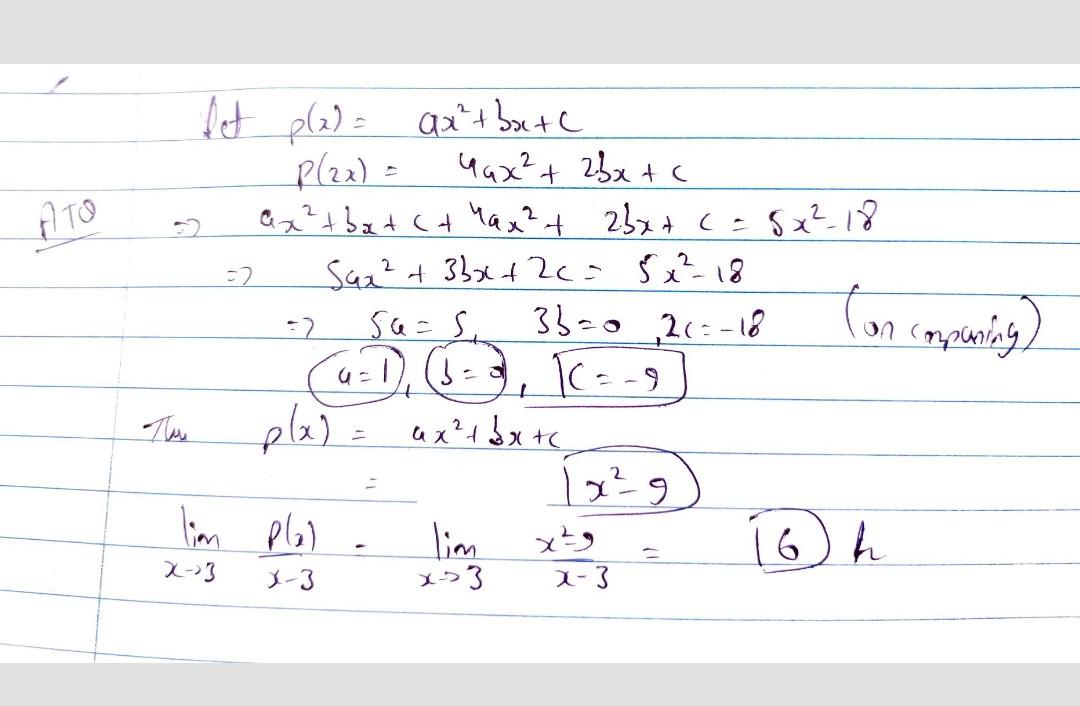 let p(x) = ax²+bx+c
P(2x) = 4ax²+ 2bx + c
ATQ => ax²+bx+c+4ax²+ 2bx+ c = 5x²-18
=> 5ax² + 3bx+2c = 5x²-18
=> 5a = 5, 3b=0, 2c=-18 (on comparing)
a=1, b=0, c=-9
p(x) = ax²+bx+c
= x²-9
lim x->3 P(x)/x-3 = lim x->3 x²-9/x-3 = 6